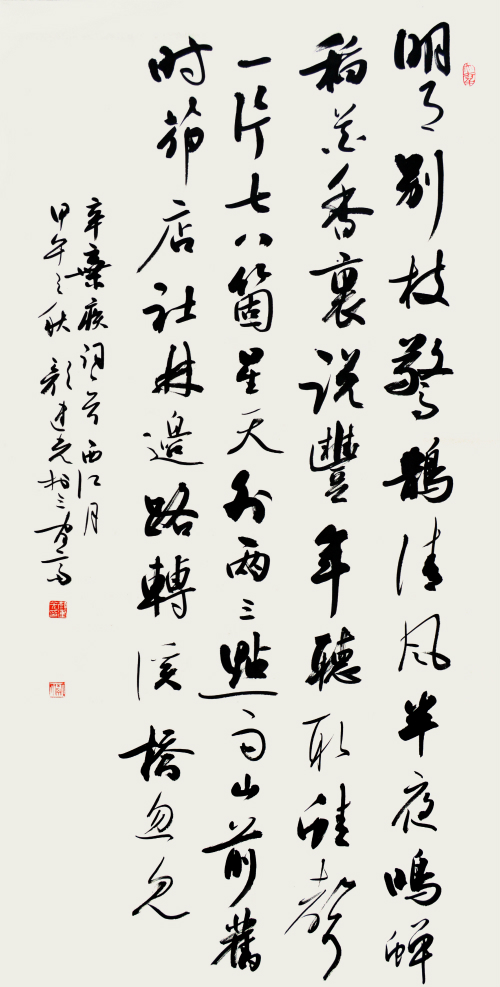 明月别枝驚鵲清風半夜鳴蟬
稻花香裏説豐年聽取蛙聲
一片七八箇星天外兩三點雨山前舊
时茆店社林邊路轉溪橋忽見
辛棄疾詞一首西江月
甲午之秋